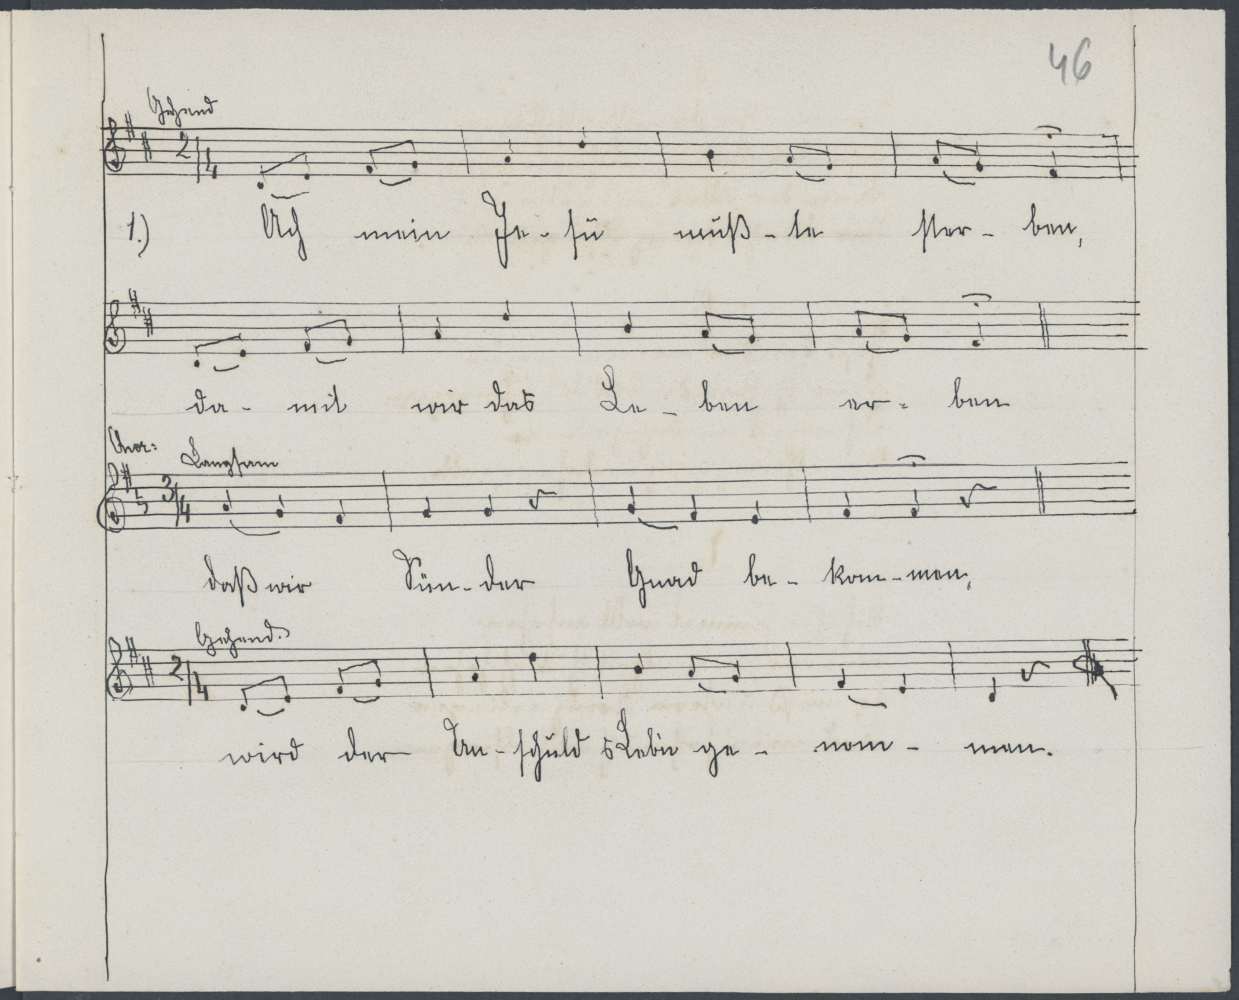 46
Gehend
2/4
1.) Ach mein Je-su muß-te ster-ben,
da- mit wir das Le-ben er- ben
Langsam
3/4
daß wir Sün-der Gnad be- kom-men,
Gehend.
2/4
wird der Un-schuld s Leb'n ge- nom- men.